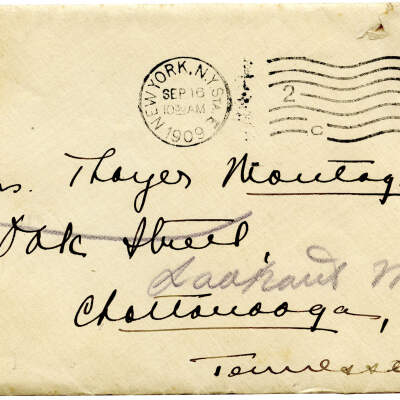 NEW YORK, N.Y. STA. E
SEP 16
10 30 AM
1909
2
C
s. Thayer Montag
Oak Street,
Lookout M
Chattanooga,
Tennesse